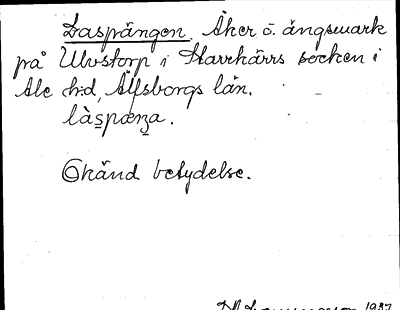 Laspängen. Åker o. ängsmark
på Ulvstorp i Starrkärrs socken i
Ale h:d, Älfsborgs län.
làspæŋa.
Okänd betydelse.
1937